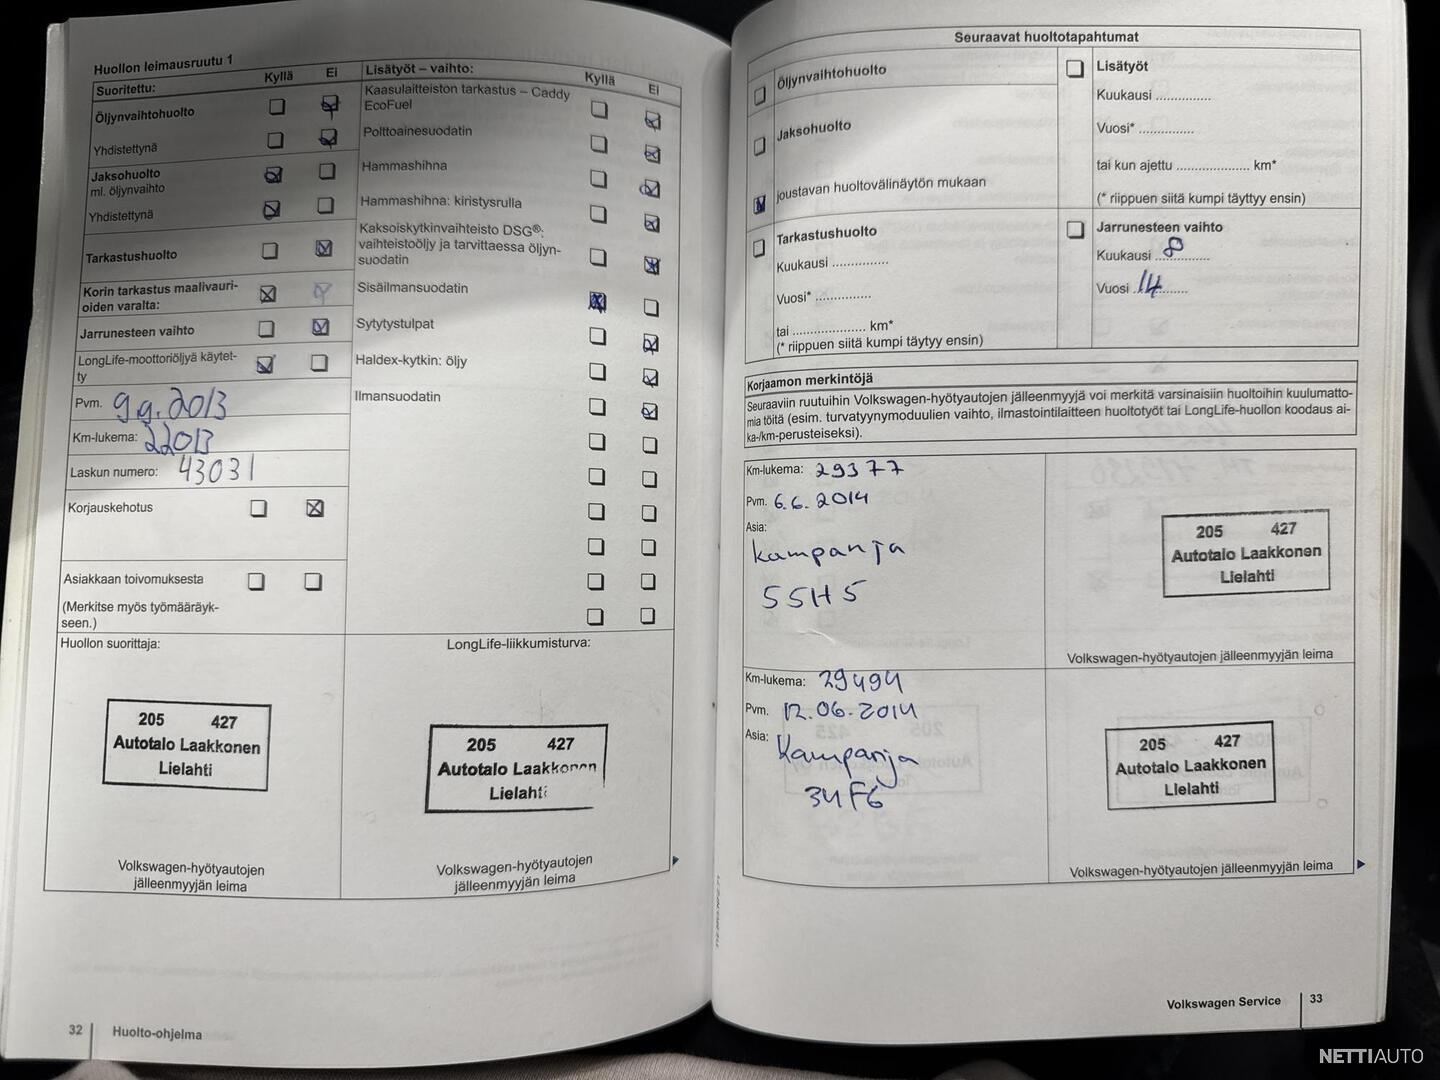 Huollon leimausruutu 1
Suoritettu: Kyllä Ei
Öljynvaihtohuolto
Yhdistettynä
Jaksohuolto
ml. öljynvaihto
Yhdistettynä
Tarkastushuolto
Korin tarkastus maalivauri-
oiden varalta:
Jarrunesteen vaihto
LongLife-moottoriöljyä käytet-
ty
Pvm. 9.9.2013
Km-lukema: 22013
Laskun numero: 43031
Korjauskehotus
Asiakkaan toivomuksesta
(Merkitse myös työmääräyk-
seen.)
Lisätyöt – vaihto: Kyllä Ei
Kaasulaitteiston tarkastus – Caddy
EcoFuel
Polttoainesuodatin
Hammashihna
Hammashihna: kiristysrulla
Kaksoiskytkinvaihteisto DSG®:
vaihteistoöljy ja tarvittaessa öljyn-
suodatin
Sisäilmansuodatin
Sytytystulpat
Haldex-kytkin: öljy
Ilmansuodatin
Huollon suorittaja:
205 427
Autotalo Laakkonen
Lielahti
Volkswagen-hyötyautojen
jälleenmyyjän leima
LongLife-liikkumisturva:
205 427
Autotalo Laakkonen
Lielahti
Volkswagen-hyötyautojen
jälleenmyyjän leima
32 Huolto-ohjelma
Seuraavat huoltotapahtumat
Öljynvaihtohuolto
Jaksohuolto
joustavan huoltovälinäytön mukaan
Tarkastushuolto
Kuukausi ...............
Vuosi* ...............
tai .................... km*
(* riippuen siitä kumpi täytyy ensin)
Lisätyöt
Kuukausi ...............
Vuosi* ...............
tai kun ajettu .................... km*
(* riippuen siitä kumpi täyttyy ensin)
Jarrunesteen vaihto
Kuukausi 8
Vuosi 14
Korjaamon merkintöjä
Seuraaviin ruutuihin Volkswagen-hyötyautojen jälleenmyyjä voi merkitä varsinaisiin huoltoihin kuulumatto-
mia töitä (esim. turvatyynymoduulien vaihto, ilmastointilaitteen huoltotyöt tai LongLife-huollon koodaus ai-
ka-/km-perusteiseksi).
Km-lukema: 29377
Pvm. 6.6.2014
Asia:
kampanja
55H5
205 427
Autotalo Laakkonen
Lielahti
Volkswagen-hyötyautojen jälleenmyyjän leima
Km-lukema: 29494
Pvm. 12.06.2014
Asia: Kampanja
34F6
205 427
Autotalo Laakkonen
Lielahti
Volkswagen-hyötyautojen jälleenmyyjän leima
Volkswagen Service 33
NETTIAUTO